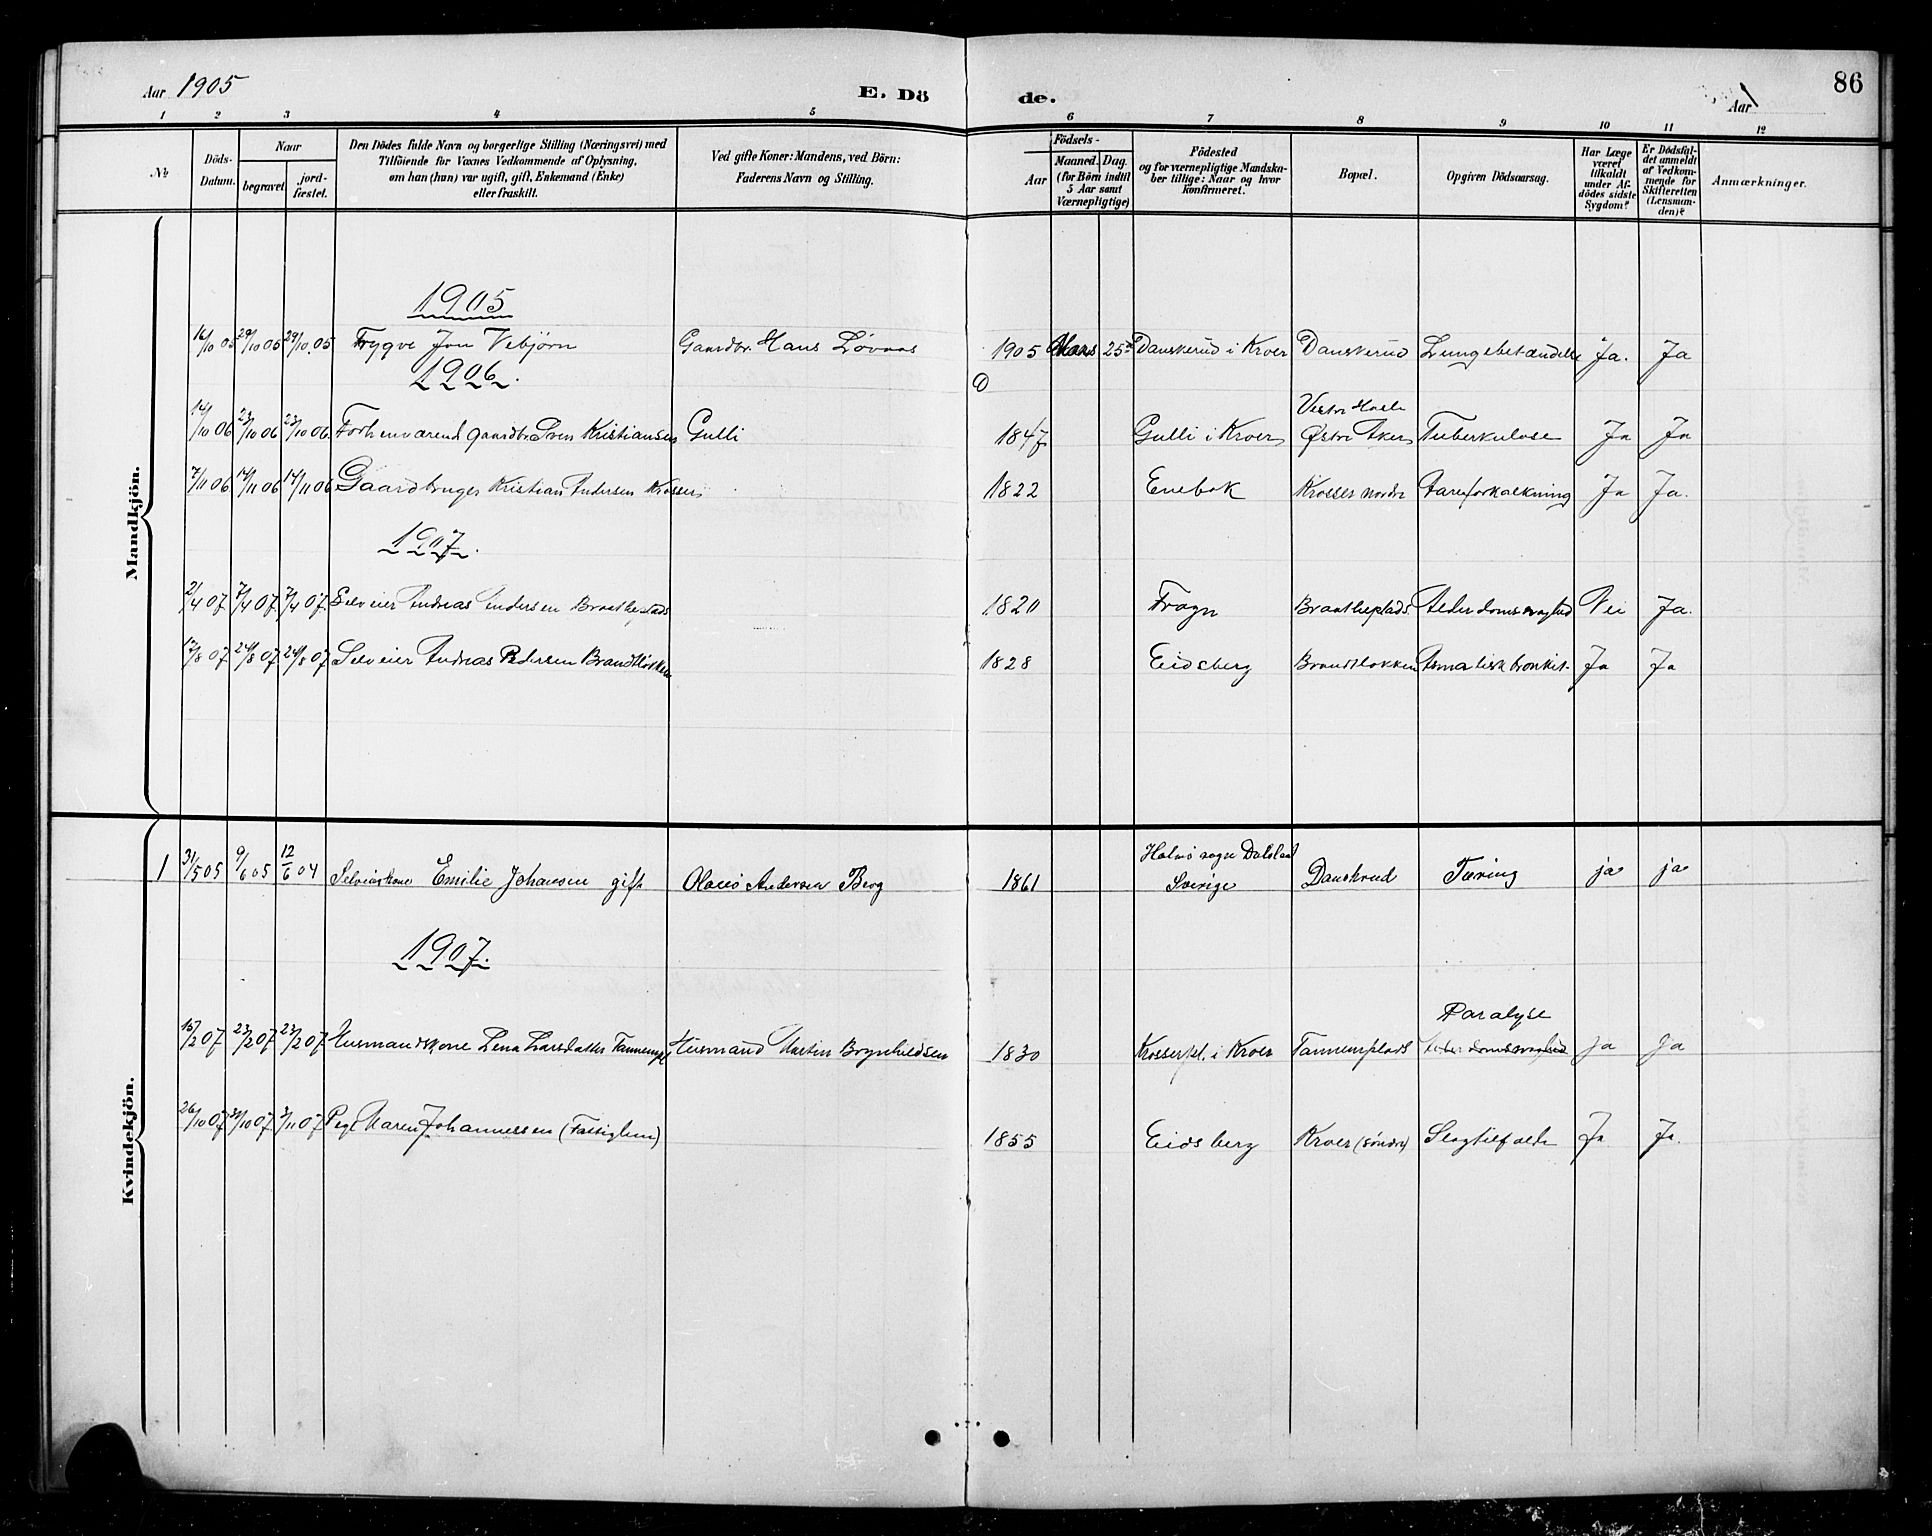 Aar 1905 E. Döde. Aar 1 86
1 2 3 4 5 6 7 8 9 10 11 12
№ Döds-Datum. Naar begravet jordfæstet. Den Dödes fulde Navn og borgerlige Stilling (Næringsvei) med Tilföiende for Voxnes Vedkommende af Oplysning, om han (hun) var ugift, gift, Enkemand (Enke) eller fraskilt. Ved gifte Koner: Mandens, ved Börn: Faderens Navn og Stilling. Födsels- Aar Maaned. Dag. (for Börn indtil 5 Aar samt Værnepligtige) Födested og for værnepligtige Mandskaber tillige: Naar og hvor konfirmeret. Bopæl. Opgiven Dödsaarsag. Har Læge været tilkaldt under Afdödes sidste Sygdom? Er Dödsfaldet anmeldt af Vedkommende for Skifteretten (Lensmanden)? Anmærkninger.
Mandkjön.
1905
16/10 05 29/10 05 29/10 05 Trygve Jon Vebjörn Gaardbr. Hans Løvaas 1905 25 Danskerud i Kroer Danskerud Lungebetændelse Ja. Ja
1906.
14/10 06 23/10 06 23/10 06. Forhenværend gaardbr. Sven Kristiansen Gulli 1847 Gulli i Kroer Østre Aker Tuberkulose Ja Ja
7/11 06 14/11 06 14/11 06 Gaardbruger Kristian Andersen Krosser 1822 Enebak Krosser nordre Aareforkalkning Ja Ja.
1907.
2/4 07 7/4 07 7/4 07 Selveier Andreas Andersen Braatheplads 1820 Frogn Braatheplads. Alderdomssvaghed Nei Ja.
17/8 07 24/8 07 24/8 07 Selveier Andreas Pedersen Brandtløkken 1828 Eidsberg Brandtløkken Asmatisk bronkit. Ja Ja
Kvindekjön.
1 31/5 05 9/6 05 12/6 04 Emilie Johansen gift Andersen Berg 1861 Dalsland Sverige Danskrud Tæring ja ja
1907.
15/2 07 23/2 07 23/2 07 Husmandskone Lena Larsdatter Tannempl Husmand Martin Brynhildsen 1830 Krosserpl. i Kroer Tannemplads Paralyse Alderdomssvaghed Ja Ja
26/10 07 31/10 07 3/11 07 Pige Maren Johannessen (Fattiglem) 1855 Eidsberg Kroer (söndre) Slagtilfælde Ja Ja.